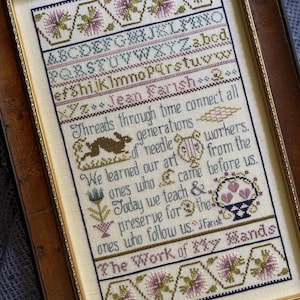 ABCDEFGHIJKLMNO
PQRSTUVWXYZabcd
efghijklmnopqrstuvwxy
yz Jean Farish
Threads through time connect all
generations
of needle workers.
We learned our art from the
ones who came before us.
Today we teach &
preserve for the
ones who follow us. JFarish
The Work of My Hands